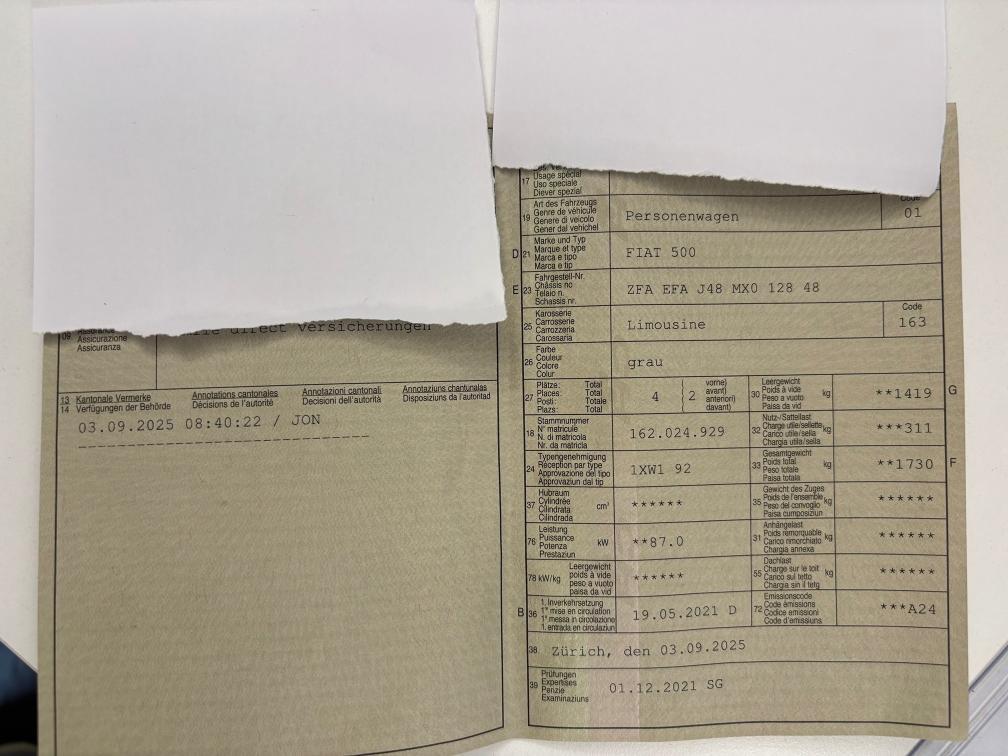 09
Assicurazione
Assicuranza
direct Versicherungen
13 Kantonale Vermerke
14 Verfügungen der Behörde
Annotations cantonales
Décisions de l'autorité
Annotazioni cantonali
Decisioni dell'autorità
Annotaziuns chantunalas
Disposiziuns da l'autoritad
03.09.2025 08:40:22 / JON
17 Usage spécial
Uso speciale
Diever spezial
19 Art des Fahrzeugs
Genre de véhicule
Genere di veicolo
Gener dal vehichel
Personenwagen
Code
01
D 21 Marke und Typ
Marque et type
Marca e tipo
Marca e tip
FIAT 500
E 23 Fahrgestell-Nr.
Châssis no
Telaio n.
Schassis nr.
ZFA EFA J48 MX0 128 48
25 Karosserie
Carrosserie
Carrozzeria
Carossaria
Limousine
Code
163
26 Farbe
Couleur
Colore
Colur
grau
27 Plätze: Total
Places: Total
Posti: Totale
Plazs: Total
4
2
vorne)
avant)
anteriori)
davant)
30 Leergewicht
Poids à vide
Peso a vuoto
Paisa da vid
kg
**1419
G
18 Stammnummer
N° matricule
N. di matricola
Nr. da matricla
162.024.929
32 Nutz-/Sattellast
Charge utile/sellette
Carico utile/sella
Chargia utila/sella
kg
***311
24 Typengenehmigung
Réception par type
Approvazione del tipo
Approvaziun dal tip
1XW1 92
33 Gesamtgewicht
Poids total
Peso totale
Paisa totala
kg
**1730
F
37 Hubraum
Cylindrée
Cilindrata
Cilindrada
cm³
******
35 Gewicht des Zuges
Poids de l'ensemble
Peso del convoglio
Paisa cumposiziun
kg
******
76 Leistung
Puissance
Potenza
Prestaziun
kW
**87.0
31 Anhängelast
Poids remorquable
Carico rimorchiato
Chargia annexa
kg
******
78 kW/kg
Leergewicht
poids à vide
peso a vuoto
paisa da vid
******
55 Dachlast
Charge sur le toit
Carico sul tetto
Chargia sin il tetg
kg
******
B 36 1. Inverkehrsetzung
1re mise en circulation
1a messa in circolazione
1. entrada en circulaziun
19.05.2021 D
72 Emissionscode
Code émissions
Codice emissioni
Code d'emissiuns
***A24
38 Zürich, den 03.09.2025
39 Prüfungen
Expertises
Perizie
Examinaziuns
01.12.2021 SG